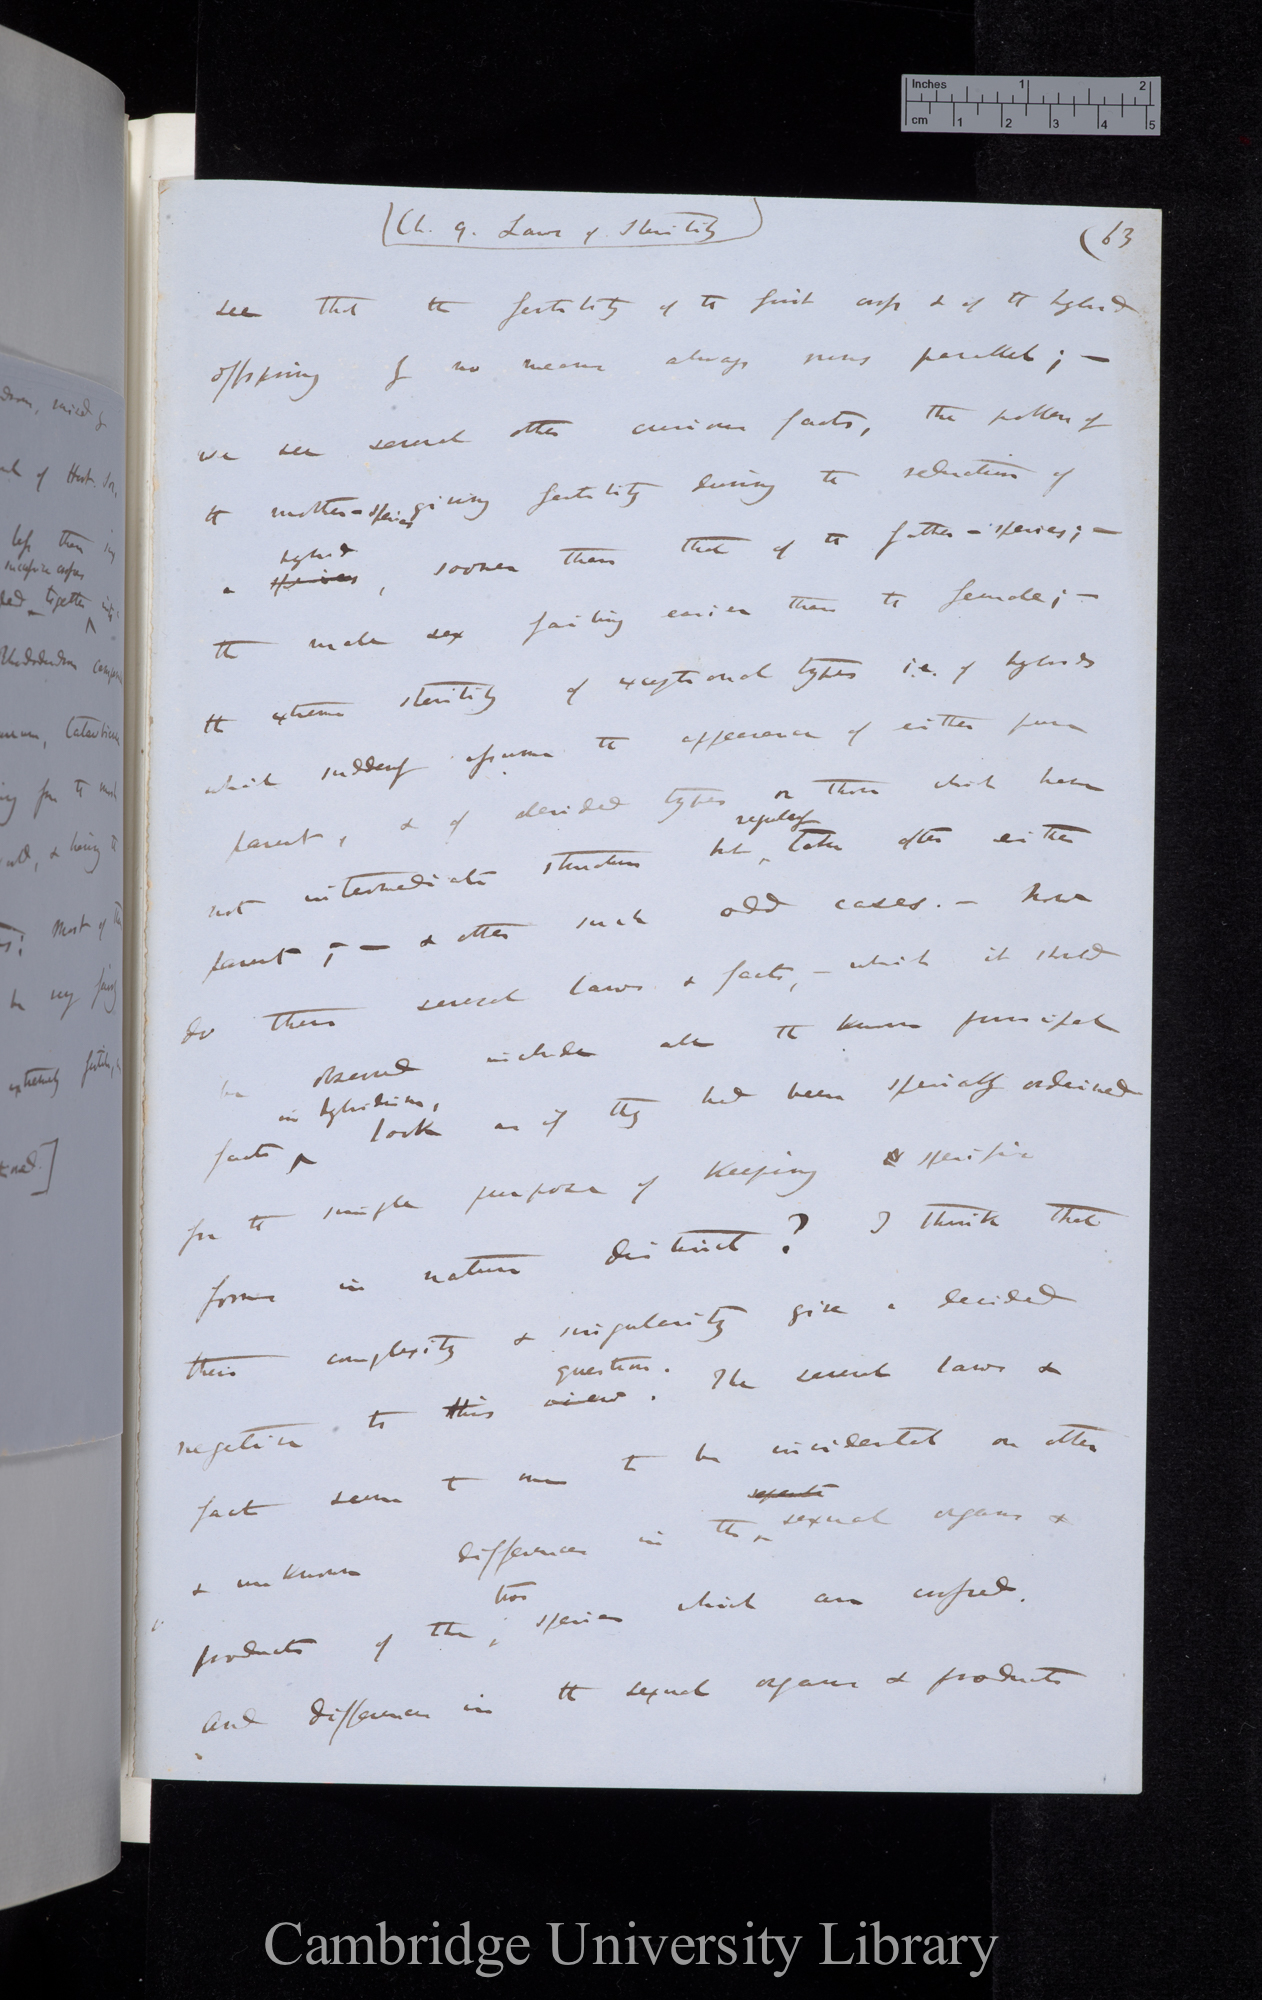 Inches 1 2
cm 1 2 3 4 5
(Ch. 9. Laws of Sterility)
(63
see that the fertility of the first cross & of the hybrid
offspring by no means always runs parallel; —
we see several other curious facts, the pollen of
the mother-species giving fertility during the reduction of
hybrid
a species, sooner than that of the father-species; —
the male sex failing earlier than the female; —
the extreme sterility of exceptional types i.e. of hybrids
which suddenly assume the appearance of either pure
parent, & of decided types or those which have
regularly
not intermediate structure but take after either
parent; — & other such odd cases. — Now
do these several laws & facts, — which it should
be observed include all the known principal
in hybridism,
facts look as if they had been specially ordained
for the simple purpose of keeping specific
forms in nature distinct? I think that
their complexity & singularity give a decided
question.
negative to this view. The several laws &
fact seem to me to be incidental on other
& unknown differences in the sexual organs &
two
products of the species which are crossed.
And differences in the sexual organs & products
of Hort. Soc.
less than
together
Rhododendron
Catawbiense
& having
most of the
extremely fertile,
Cambridge University Library